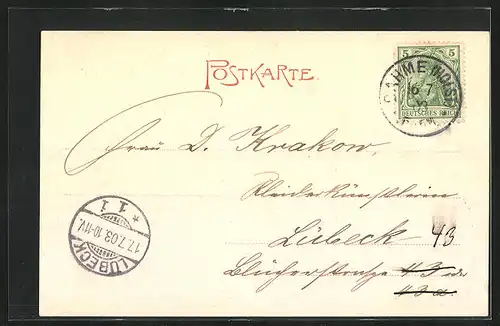 POSTKARTE
5 5
DEUTSCHES REICH
DAHME
16 7
Frau D. Krakow,
Kleiderkünstlerin
Lübeck 43
Blücherstrasse 43 oder
43a.
LÜBECK
17.7.03.10-11V.
* 1 i